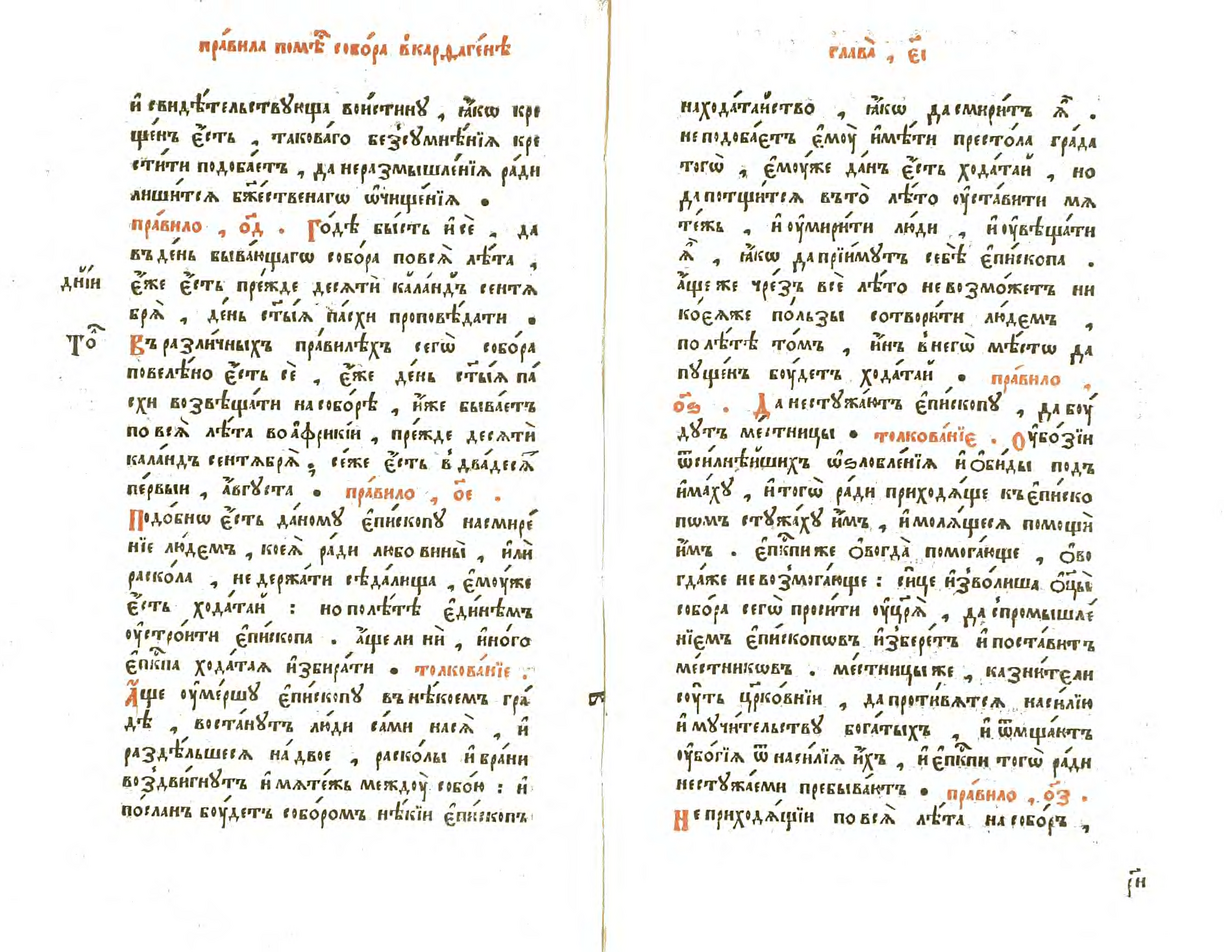 пра́вила помѣ́с собо́ра в̾карѳаге́нѣ
и҆ свидѣ́тельствꙋюща вои́стинꙋ , ꙗ҆́кѡ кре
ще́нъ є҆́сть , такова́го без̾сꙋмнѣ́нїѧ кре
сти́ти подоба́етъ , да неразмышле́нїѧ ради
лиши́тсѧ бж҃е́ственагѡ ѡ҆чище́нїѧ .
пра́вило , о҃д . Годѣ̀ бы́сть и҆ сѐ , да
въ де́нь быва́ющагѡ собо́ра повсѧ̀ лѣ́та ,
дні́и
є҆́же є҆́сть пре́жде десѧтѝ кала́ндъ сентѧ
брѧ̀ , де́нь ст҃ы́ѧ па́схи проповѣ́дати .
То́л
Въ разли́чныхъ пра́вилѣхъ сегѡ̀ собо́ра
повелѣ́но є҆́сть сѐ , є҆́же де́нь ст҃ы́ѧ па́
схи возвѣща́ти на собо́рѣ , и҆́же быва́етъ
по всѧ̀ лѣ́та во а҆фрикі́и , пре́жде десѧтѝ
кала́ндъ сентѧбрѧ̀ , се́же є҆́сть в̾ два́десѧт
первыи , а҆́вгꙋста . пра́вило , о҃е .
Подо́бнѡ є҆́сть да́номꙋ є҆пи́скопꙋ на смире́
нїе лю́демъ , коеѧ̀ ра́ди любо вины̀ , и҆лѝ
раско́ла , не держа́ти сѣда́лища , є҆мꙋ́же
є҆́сть хода́таи : но по лѣ́тѣ є҆ди́нѣмъ
оу҆стро́ити є҆пи́скопа . а҆́ще ли нѝ , и҆но́го
є҆пк҃па хода́таѧ и҆збира́ти . толкова́нїе .
А҆́ще оу҆ме́ршꙋ є҆пи́скопꙋ в нѣ́коемъ гра́
дѣ , воста́нꙋтъ лю́ди са́ми на сѧ̀ , и҆
раздѣ́льшесѧ на́ двое , раско́лы и҆ бра́ни
воздви́гнꙋтъ и҆ мѧте́жь междоу̀ собо́ю : и҆
по́сланъ боу́детъ собо́ромъ нѣ́кїи є҆пи́скопъ
глава̀ , є҃і
находа́таиство , ꙗ҆́кѡ да смири́тъ ѧ҆̀ .
не подоба́етъ є҆моу̀ и҆мѣ́ти престо́ла гра́да
тогѡ̀ , є҆моу́же да́нъ є҆́сть хода́таи , но
да потщи́тсѧ въ то̀ лѣ́то оу҆ста́вити мѧ
те́жь , и҆ оу҆мири́ти лю́ди , и҆ оу҆вѣща́ти
ѧ҆̀ , ꙗ҆́кѡ да прїи́мꙋтъ себѣ̀ є҆пи́скопа .
а҆́ще же чрез̾ всѐ лѣ́то не возмо́жетъ ни
коеѧ́же по́льзы сотвори́ти лю́демъ ,
по лѣ́тѣ то́мъ , и҆́нъ в̾ негѡ̀ мѣ́сто да
пꙋще́нъ боу́детъ хода́таи . пра́вило ,
о҃ѕ . Да не стꙋжа́ютъ є҆пи́скопꙋ , да боу́
дꙋтъ ме́стницы . толкова́нїе . Оу҆бо́зїи
ѿ си́льнѣишихъ ѡ҆ѕлобле́нїѧ и҆ ѻ҆би́ды подъ
и҆ма́хꙋ , и҆ тогѡ̀ ра́ди приходѧ́ще къ є҆пи́ско
пѡмъ стꙋжа́хꙋ и҆́мъ , и҆ молѧ́щесѧ помощѝ
и҆́мъ . є҆пк҃пи же ѻ҆вогда̀ помога́юще , ѻ҆во
гда́же не возмога́юще : си́це и҆зво́лиша ѻ҆ц҃ы̀
собо́ра сегѡ̀ проси́ти оу҆ цр҃ѧ̀ , да с̾ промышле́
нїемъ є҆пи́скопѡвъ и҆збере́тъ и҆ поста́витъ
ме́стникѡвъ . ме́стницы же , казни́тели
соу́ть цр҃ко́внїи , да проти́вѧтсѧ наси́лїю
и҆ мꙋчи́тельствꙋ бога́тыхъ , и҆ ѿмща́ютъ
оу҆бо́гїѧ ѿ наси́лїѧ и҆́хъ , и҆ є҆пк҃пи тогѡ̀ ра́ди
не стꙋжа́еми пребыва́ютъ . пра́вило , о҃з .
Не приходѧ́щїи по всѧ̀ лѣ́та на собо́ръ ,
р҃н